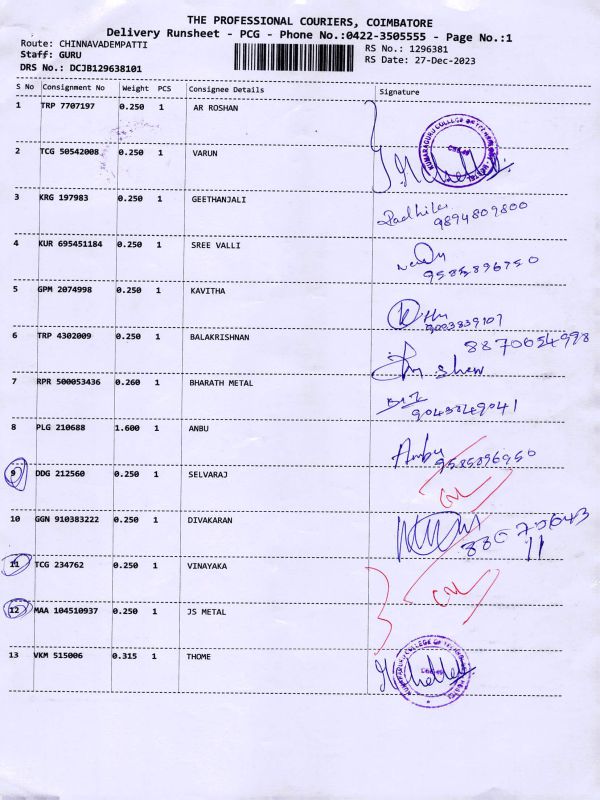 THE PROFESSIONAL COURIERS, COIMBATORE
Delivery Runsheet - PCG - Phone No.:0422-3505555 - Page No.:1
Route: CHINNAVADEMPATTI
Staff: GURU
DRS No.: DCJB129638101
RS No.: 1296381
RS Date: 27-Dec-2023
S No Consignment No Weight PCS Consignee Details Signature
1 TRP 7707197 0.250 1 AR ROSHAN
2 TCG 50542008 0.250 1 VARUN
3 KRG 197983 0.250 1 GEETHANJALI Radhika
9894809800
4 KUR 695451184 0.250 1 SREE VALLI
9585896750
5 GPM 2074998 0.250 1 KAVITHA
9003839107
6 TRP 4302009 0.250 1 BALAKRISHNAN 8870654998
7 RPR 500053436 0.260 1 BHARATH METAL
9043849041
8 PLG 210688 1.600 1 ANBU Anbu
9585896950
9 DDG 212560 0.250 1 SELVARAJ
10 GGN 910383222 0.250 1 DIVAKARAN
11 TCG 234762 0.250 1 VINAYAKA
12 MAA 104510937 0.250 1 JS METAL
13 VKM 515006 0.315 1 THOME